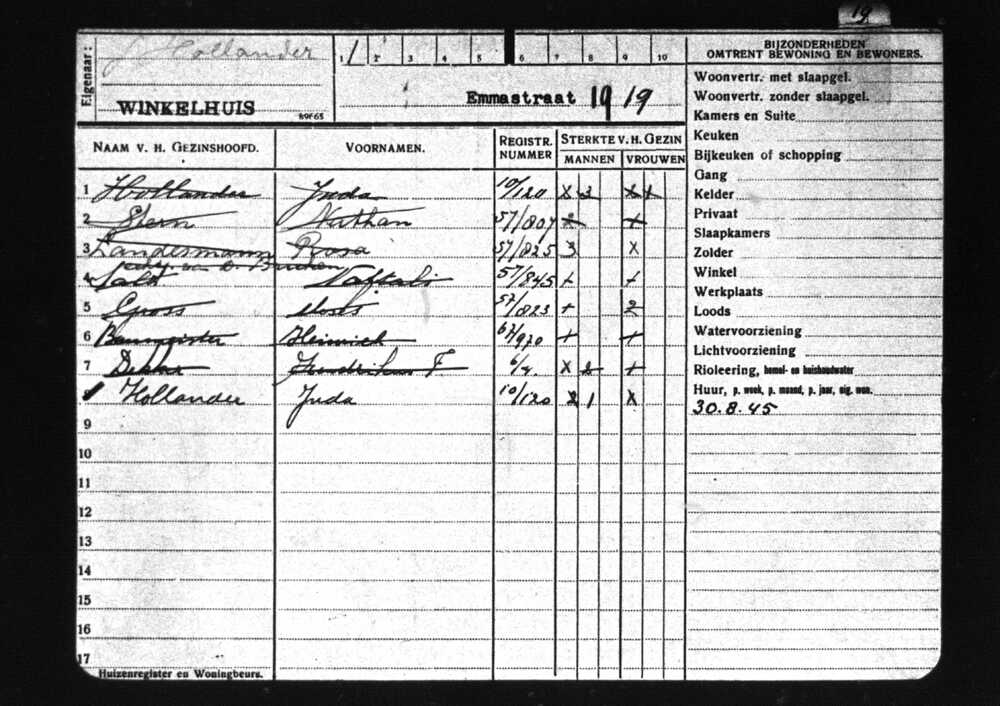 19
Eigenaar: J Hollander
WINKELHUIS
89F65
1 2 3 4 5 6 7 8 9 10
Emmastraat 19 19
BIJZONDERHEDEN
OMTRENT BEWONING EN BEWONERS.
NAAM V. H. GEZINSHOOFD. VOORNAMEN. REGISTR. NUMMER STERKTE V. H. GEZIN
MANNEN VROUWEN
1 Hollander Juda 10/120 x 3 x x
2 Stern Nathan 57/807 2 +
3 Landesmann Rosa 57/825 3 x
4 Naftali 57/845 + +
5 Gross Moses 57/823 + 2
6 Baumeister Heinrich 67/920 + +
7 Dekker F 6/4. x 2 +
8 Hollander Juda 10/120 2 1 x
9
10
11
12
13
14
15
16
17
Huizenregister en Woningbeurs.
Woonvertr. met slaapgel.
Woonvertr. zonder slaapgel.
Kamers en Suite
Keuken
Bijkeuken of schopping
Gang
Kelder
Privaat
Slaapkamers
Zolder
Winkel
Werkplaats
Loods
Watervoorziening
Lichtvoorziening
Rioleering, hemel- en huishoudwater
Huur, p. week, p. maand, p. jaar, eig. won.
30.8.45